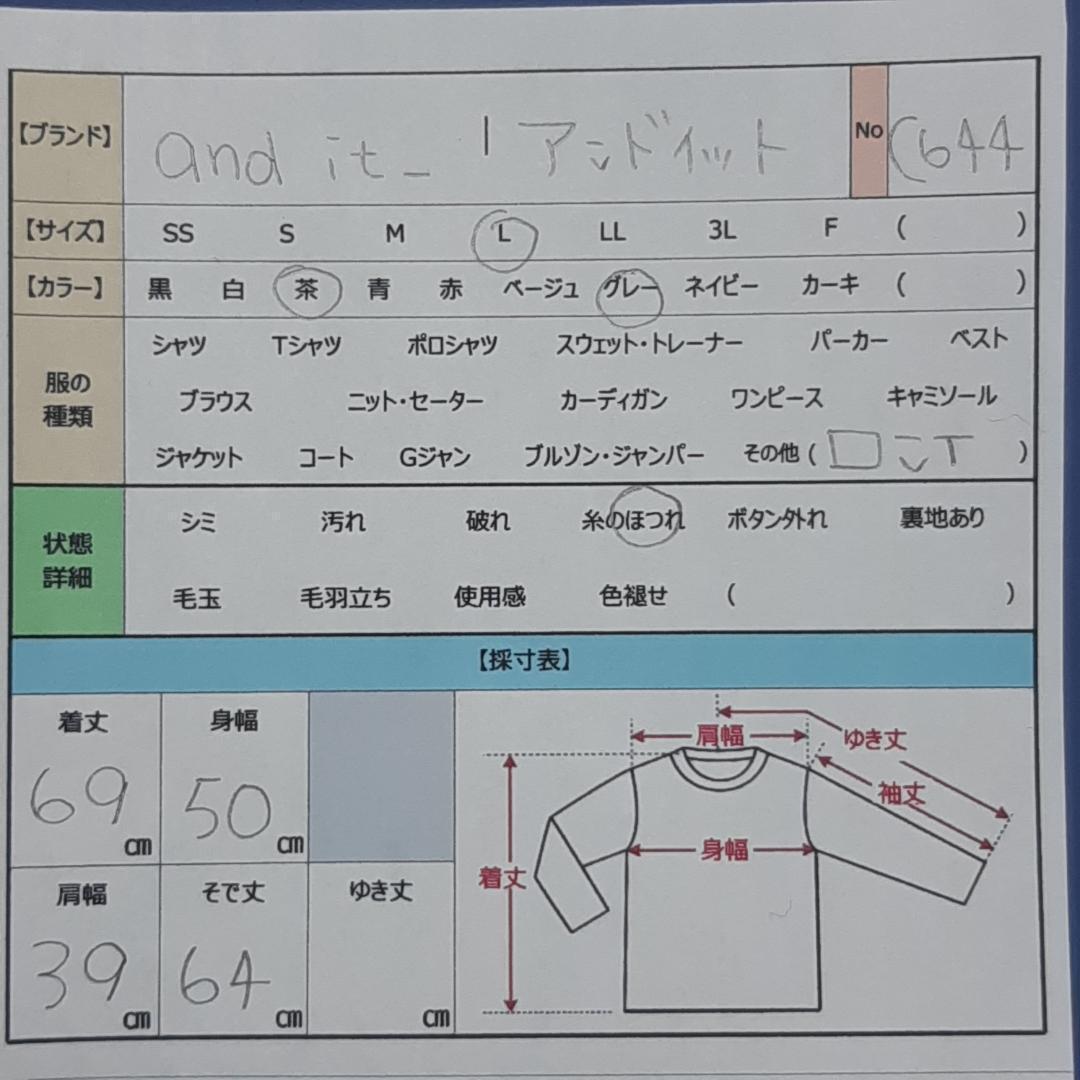 【ブランド】 and it_ | アンドイット No (644
【サイズ】 SS S M L LL 3L F ( )
【カラー】 黒 白 茶 青 赤 ベージュ グレー ネイビー カーキ ( )
服の種類
シャツ Tシャツ ポロシャツ スウェット・トレーナー パーカー ベスト
ブラウス ニット・セーター カーディガン ワンピース キャミソール
ジャケット コート Gジャン ブルゾン・ジャンパー その他 ( ロンT )
状態詳細
シミ 汚れ 破れ 糸のほつれ ボタン外れ 裏地あり
毛玉 毛羽立ち 使用感 色褪せ ( )
【採寸表】
着丈 身幅
69 cm 50 cm
肩幅 そで丈 ゆき丈
39 cm 64 cm cm
肩幅 ゆき丈
袖丈
身幅
着丈